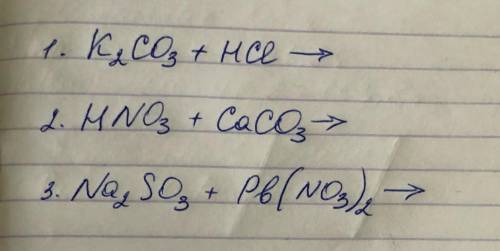 1. K₂CO₃ + HCl →
2. HNO₃ + CaCO₃ →
3. Na₂SO₃ + Pb(NO₃)₂ →